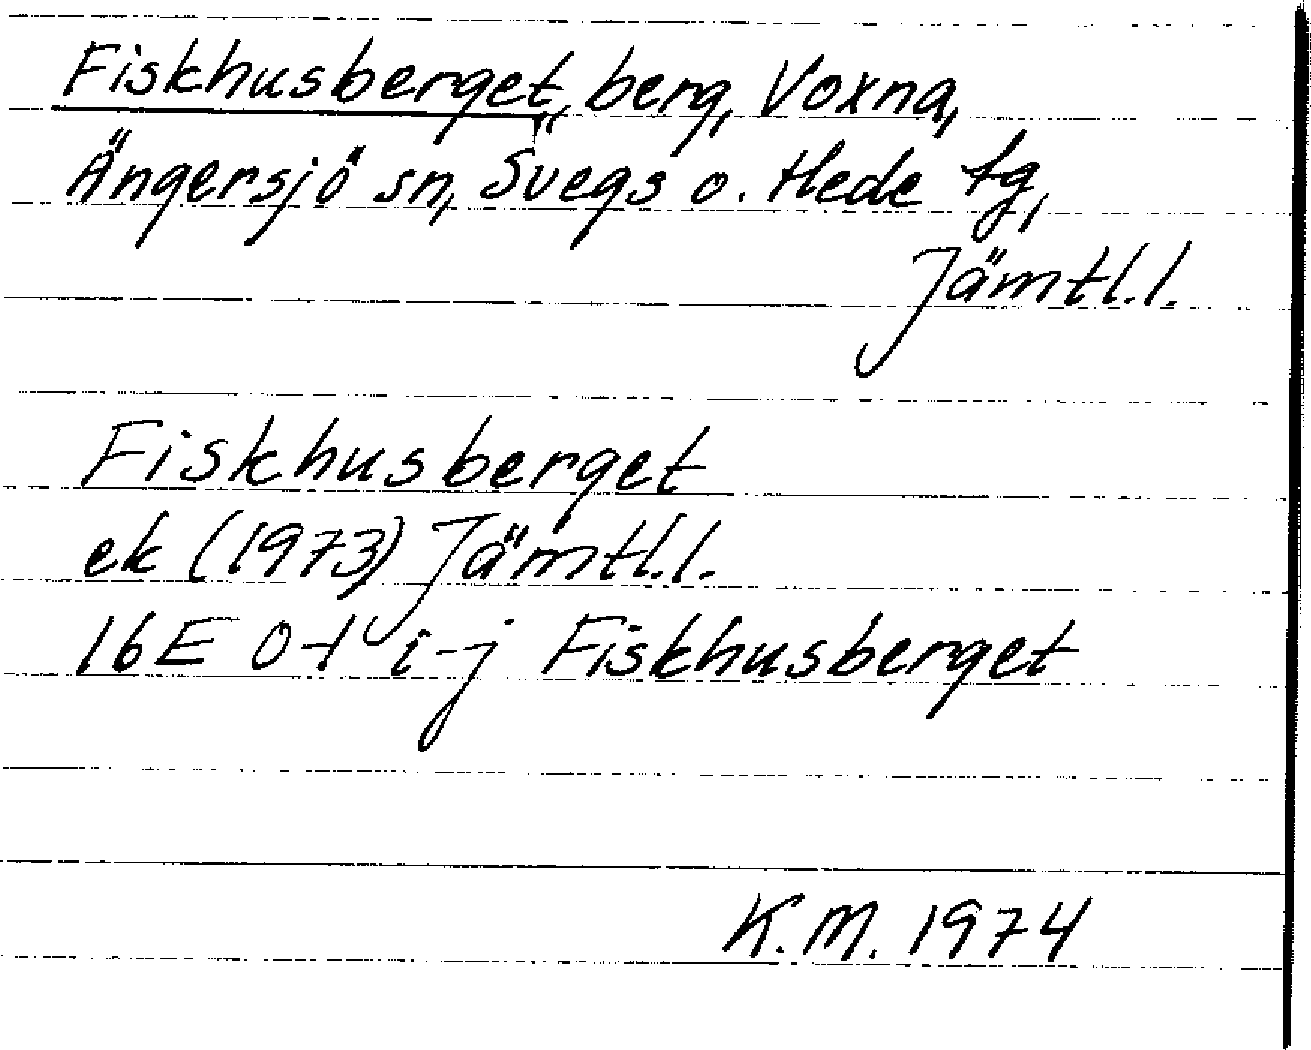 Fiskhusberget, berg, Voxna,
Ängersjö sn, Svegs o. Hede tg,
Jämtl.l.
Fiskhusberget
ek (1973) Jämtl.l.
16E 0-1 i-j Fiskhusberget
K.M. 1974